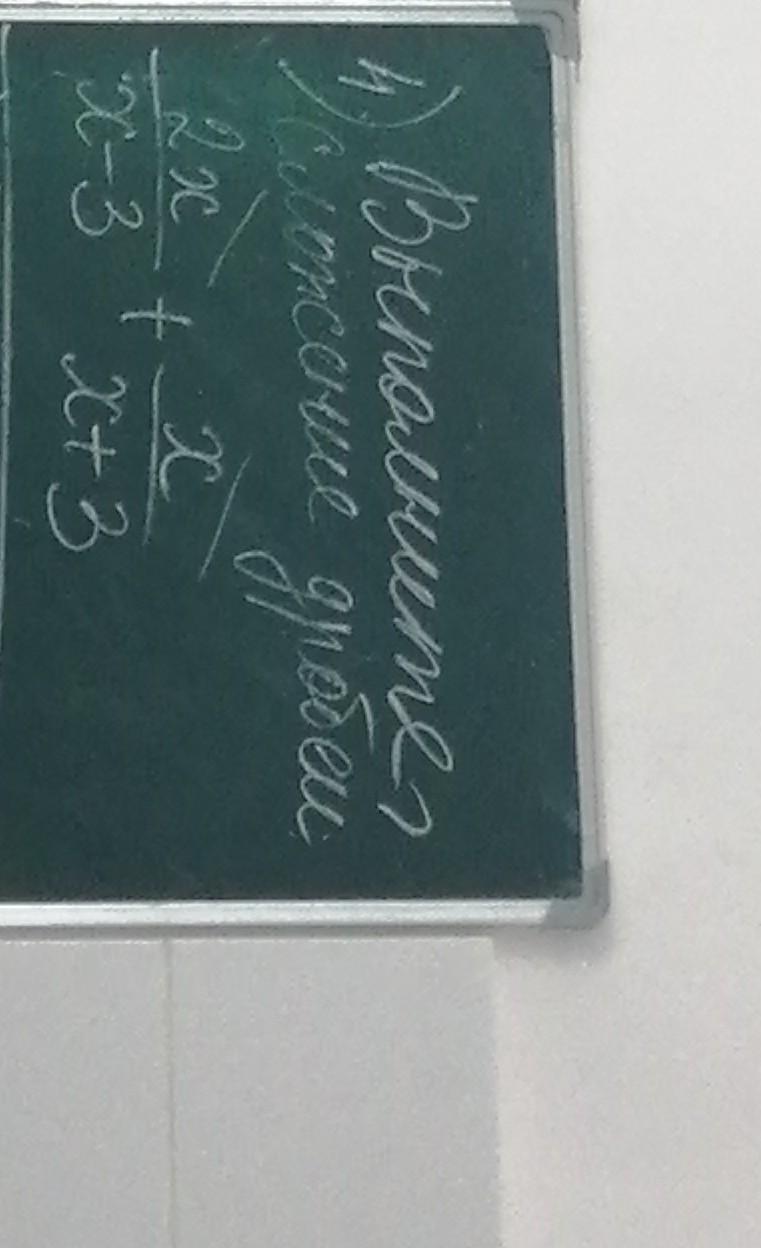 4) Выполните
сложение дробей
2x/x-3 + x/x+3